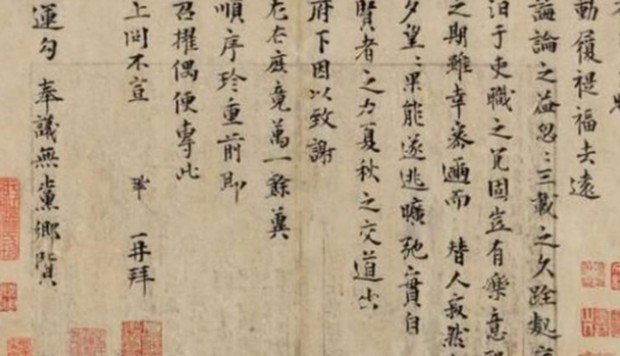 動履禔福去遠
誨論之益忽〻三載之久跧
汩于吏職之冗固豈有樂意
之期雖幸暮邇而替人寂然
夕望〻果能遂逃曠弛實自
賢者之力夏秋之交道出
府下因以致謝
左右庶竟萬一餘冀
順序珍重前即
召擢偶便專此
上問不宣 再拜
運勾奉議無黨鄉賢